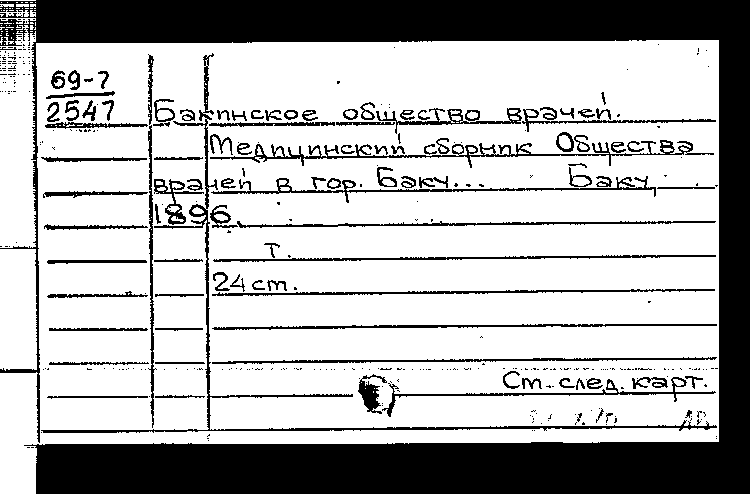 69-7
2547
Бакинское общество врачей.
Медицинский сборник Общества
врачей в гор. Баку... Баку,
1896.
т.
24 cm.
См. след. карт.